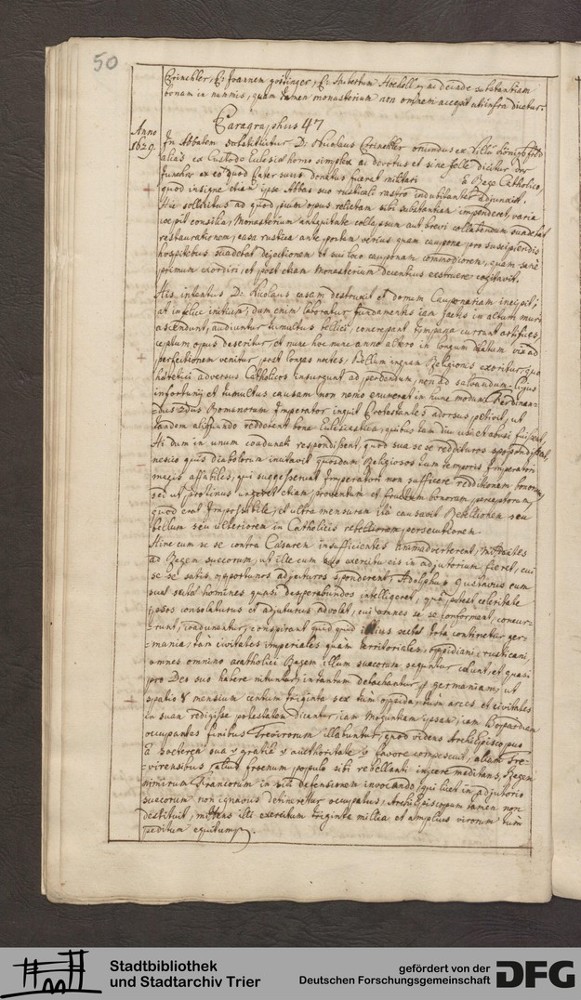 50
Crinchler, Et Joannem gottinger, Et Hubertum Hochell, ac deinde substantiam
bonam in nummis, quam tamen monasterium non omnem accepit uti infra dicetur.
Anno 1629.
Paragraphus 47
In Abbatem substituitur D. Nicolaus Crinchler oriundus ex Villa
alias ex Custode Ecclesiae homo simplex ac devotus et sine felle dicitur
eo quod frater suus donatus fuerat militari a Rege Catholico,
quod insigne etiam ipse Abbas suo rusticali rastro indubitanter adjunxit.
Hic sollicitus ad quod, pium opus relictam sibi substantiam impenderet varia
coepit consilia, Monasterium antiquitate collapsum aut brevi collabendum suadebat
restaurationem, casa rustica ante portam verius quam caupona pro suscipiendis
hospitibus suadebat dejectionem et sui loco cauponam commodiorem, quam sane
primum exordiri, et post etiam Monasterium decentius exstruere cogitavit.
His intentus D. Nicolaus casam destruxit et domum Cauponariam incepit,
at infelix initium, dum enim laboratur fundamentis iam jactis in altum muri
ascendunt, audiuntur tumultus bellici, concrepant tympana currunt artifices,
coeptum opus deseritur, et nunc hoc nunc anno altero in longum dilatum vix ad
perfectionem venitur, post longas noctes, bellum
haeretici adversus Catholicos insurgunt ad perdendum, non ad salvandum. Hujus
infortunii et tumultus causam non nemo enumerat in hunc modum Ferdinan-
dus 2dus Romanorum Imperator inquit Protestantes adorsus petivit, ut
tandem aliquando redderent bona Ecclesiastica, quibus tam diu
At dum in unum coadunati respondissent, quod sua se se reddituros
nescio quis diabolorum incitavit quosdam Religiosos cum temporis Imperatori
magis affabiles, qui suggesserunt Imperatori non sufficere redditionem bonorum,
sed ut protinus urgeret etiam, proventum et fructum bonorum, perceptorum,
quod erat Impossibile, et ultra mensuram ista causavit Rebellionem seu
bellum seu ulteriorem in Catholicis rebelliorem persecutionem.
Hinc cum se se contra Caesarem insufficientes animadverterent, mittentes
ad Regem suecorum, ut ille cum suo exercitu eis in adjutorium fieret, cui
se se satis opportunos adjutores sponderent, Adolphus Gustavus cum
suae sectae homines quasi desperabundos intelligeret, quam potuit celeritate
ipsos consolaturus et adjuturus advolat, cui omnes se se conformant, concur-
runt, coadunantur, conspirant quid quid istius sectae tota continetur ger-
mania, tam civitates imperiales quam territoriales, oppidiani, rusticani,
omnes omnino acatholici Regem illum suecorum sequuntur colunt, et quasi
pro Deo suo habere nituntur, in tantum debachantur per germaniam, ut
spatio 8 mensium centum triginta sex tum oppida, tum arces et civitates
in suam redigisse potestatem dicantur, iam Moguntiam ipsam, iam Bopardiam
occupantes finibus Trevirorum illabuntur, quod videns Archi Episcopus
sua gratia authoritate favore compescuit, aliam Tre-
virensibus sibi rebellanti injicere meditans, Regem
nimirum Francorum in sui defensionem invocando, qui licet in adjutorio
suecorum non ignavus detineretur occupatus, Archi Episcopum tamen non
destituit, mittens illi exercitum triginta millia et amplius virorum tum
peditum equitumque.
Stadtbibliothek
und Stadtarchiv Trier
gefördert von der
Deutschen Forschungsgemeinschaft
DFG